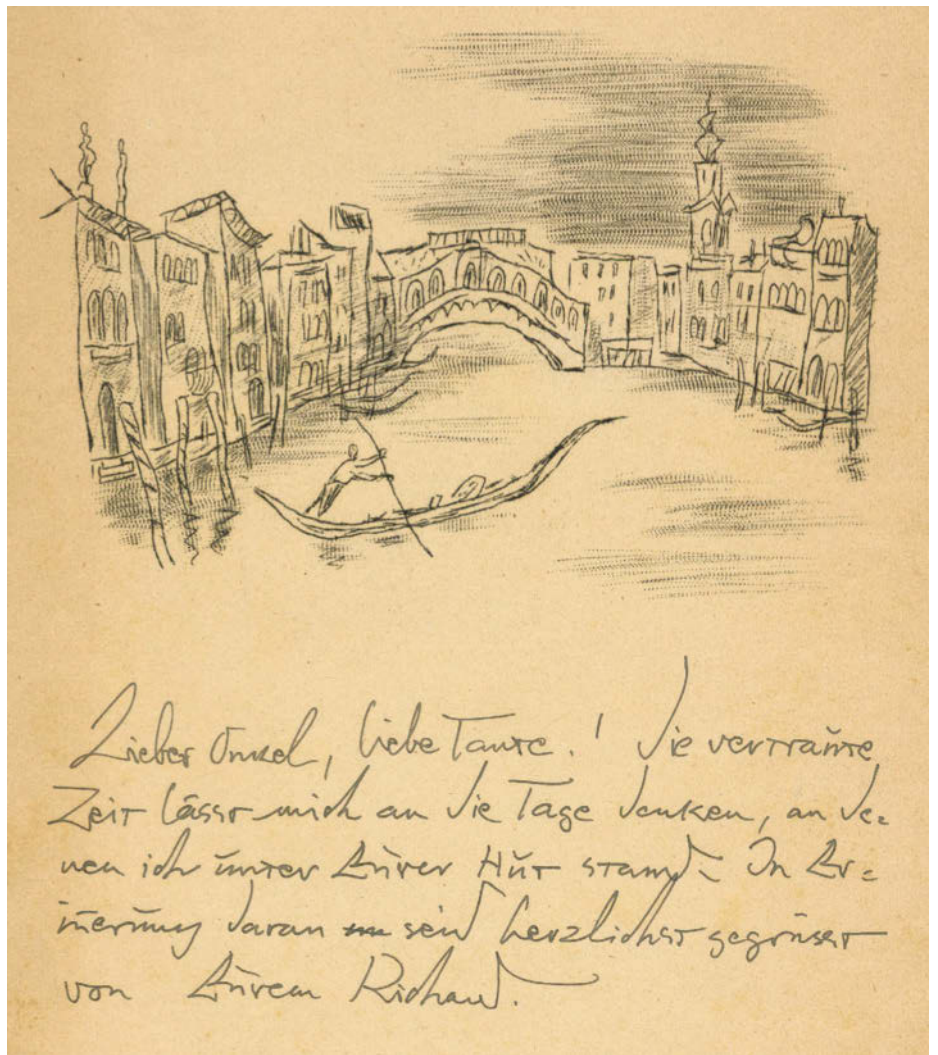 Lieber Onkel, liebe Tante! Die verträumte
Zeit lässt mich an die Tage denken, an de=
nen ich unter Eurer Hut stand. In Er=
innerung daran seid herzlichst gegrüsst
von Eurem Richard.